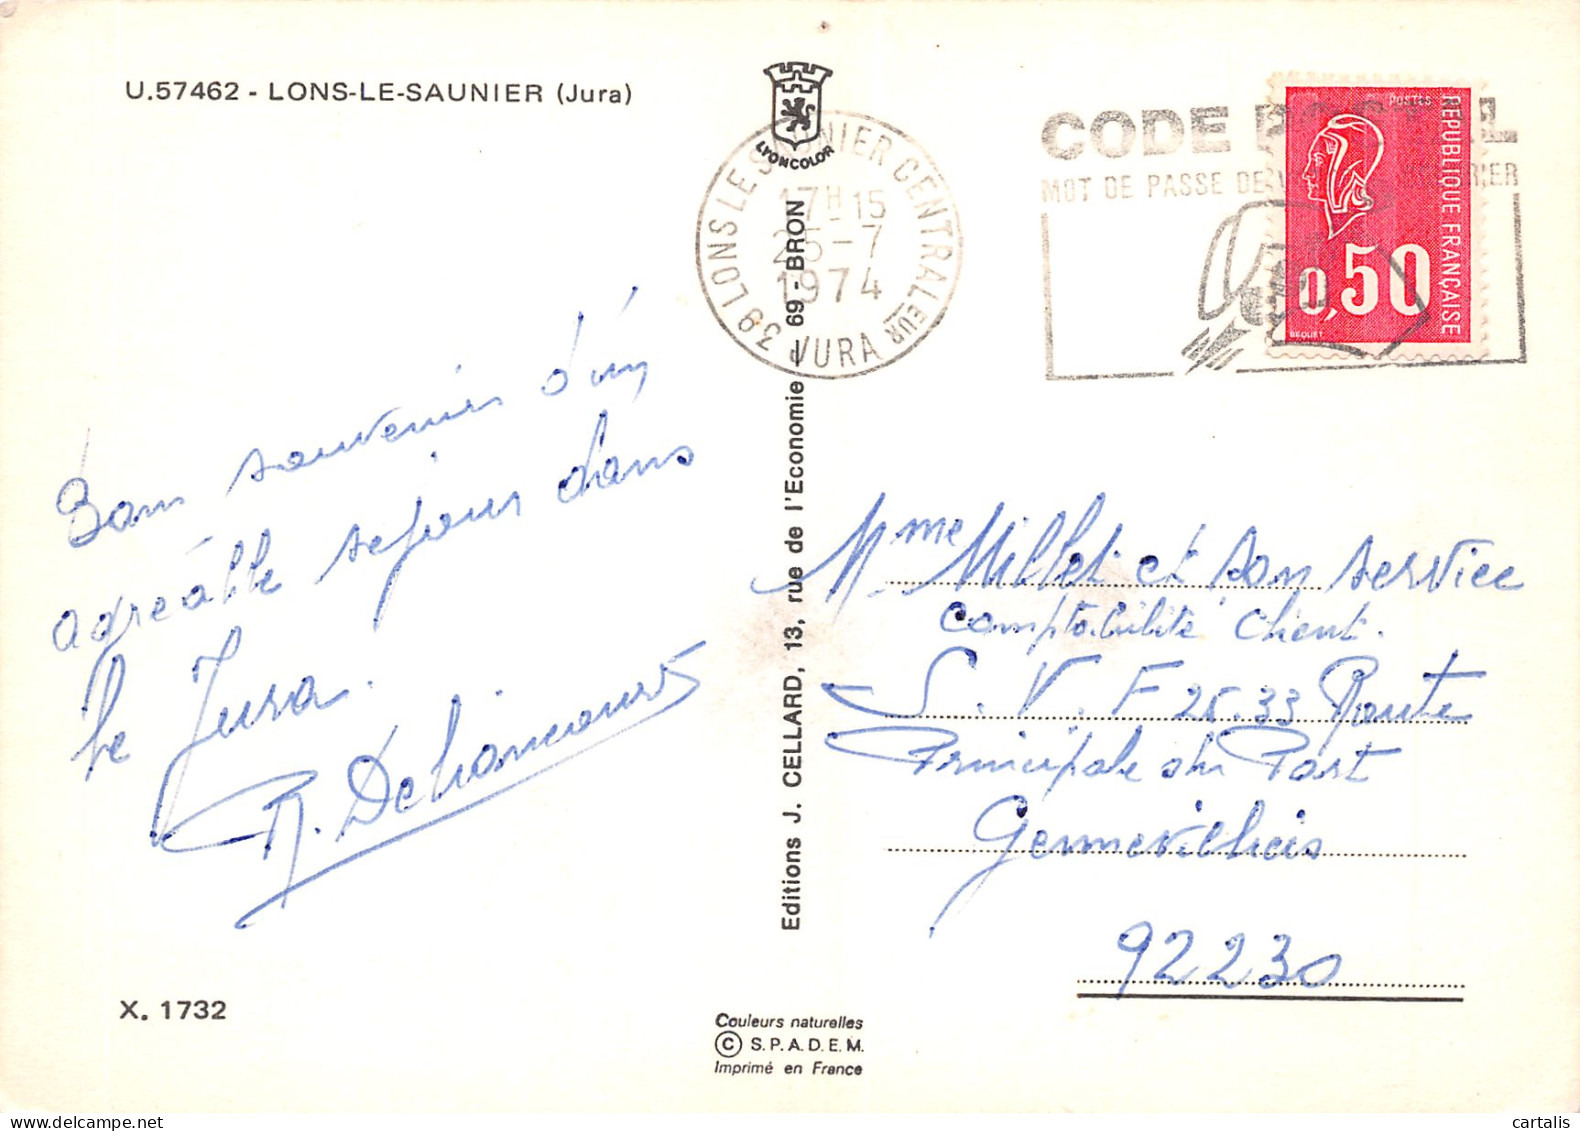 U.57462 - LONS-LE-SAUNIER (Jura)
Bon souvenir d'un
agréable séjour dans
le Jura.
R. Dehancourt
X. 1732
LYONCOLOR
Editions J. CELLARD, 13, rue de l'Economie - 69 - BRON
Couleurs naturelles
© S.P.A.D.E.M.
Imprimé en France
39 LONS LE SAUNIER CENTRALISATEUR
17H15
25-7
1974
JURA
CODE POSTAL
MOT DE PASSE DE
POSTES
REPUBLIQUE FRANÇAISE
0,50
BEQUET
Mme Millet et son service
comptabilité client.
S. V. F 25.33 Route
Principale du Port
Gennevilliers
92230